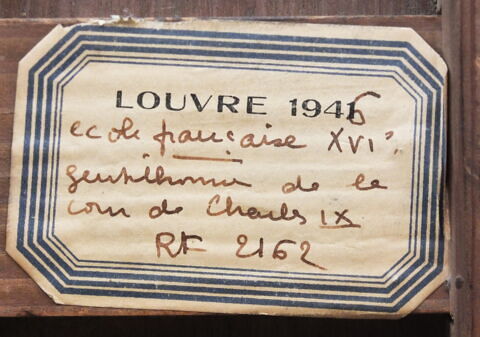 LOUVRE 1945
ecole française XVIe
gentilhomme de la
cour de Charles IX
RF 2162